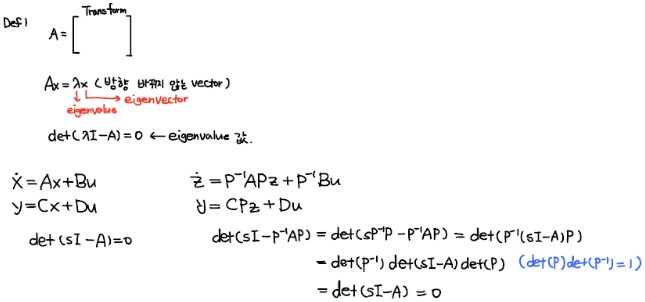 Def)
Transform
A = [ ]
Ax = λx ( 방향 바뀌지 않는 vector)
eigenvector
eigenvalue
det(λI-A)=0 ← eigenvalue 값.
ẋ = Ax+Bu
y = Cx+Du
det(sI-A)=0
ż = P⁻¹APz + P⁻¹Bu
y = CPz + Du
det(sI-P⁻¹AP) = det(sP⁻¹P - P⁻¹AP) = det(P⁻¹(sI-A)P)
= det(P⁻¹) det(sI-A) det(P) (det(P)det(P⁻¹)=1)
= det(sI-A) = 0